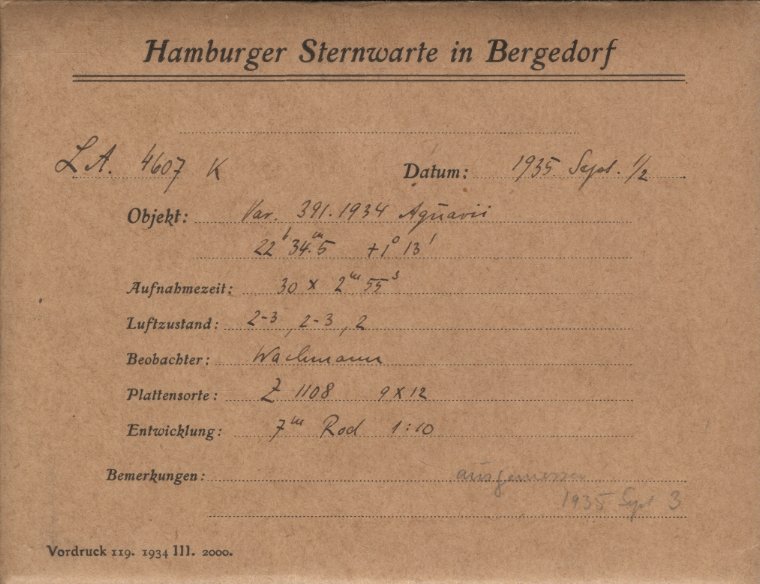 Hamburger Sternwarte in Bergedorf
LA. 4607 K Datum: 1935 Sept. 1/2
Objekt: Var. 391.1934 Aquarii
22ʰ 34ᵐ.5 +1° 13'
Aufnahmezeit: 30 x 2ᵐ 55ˢ
Luftzustand: 2-3, 2-3, 2
Beobachter: Wachmann
Plattensorte: Z 1108 9x12
Entwicklung: 7ᵐ Rod 1:10
Bemerkungen: ausgemessen
1935 Sept 3
Vordruck 119. 1934 III. 2000.